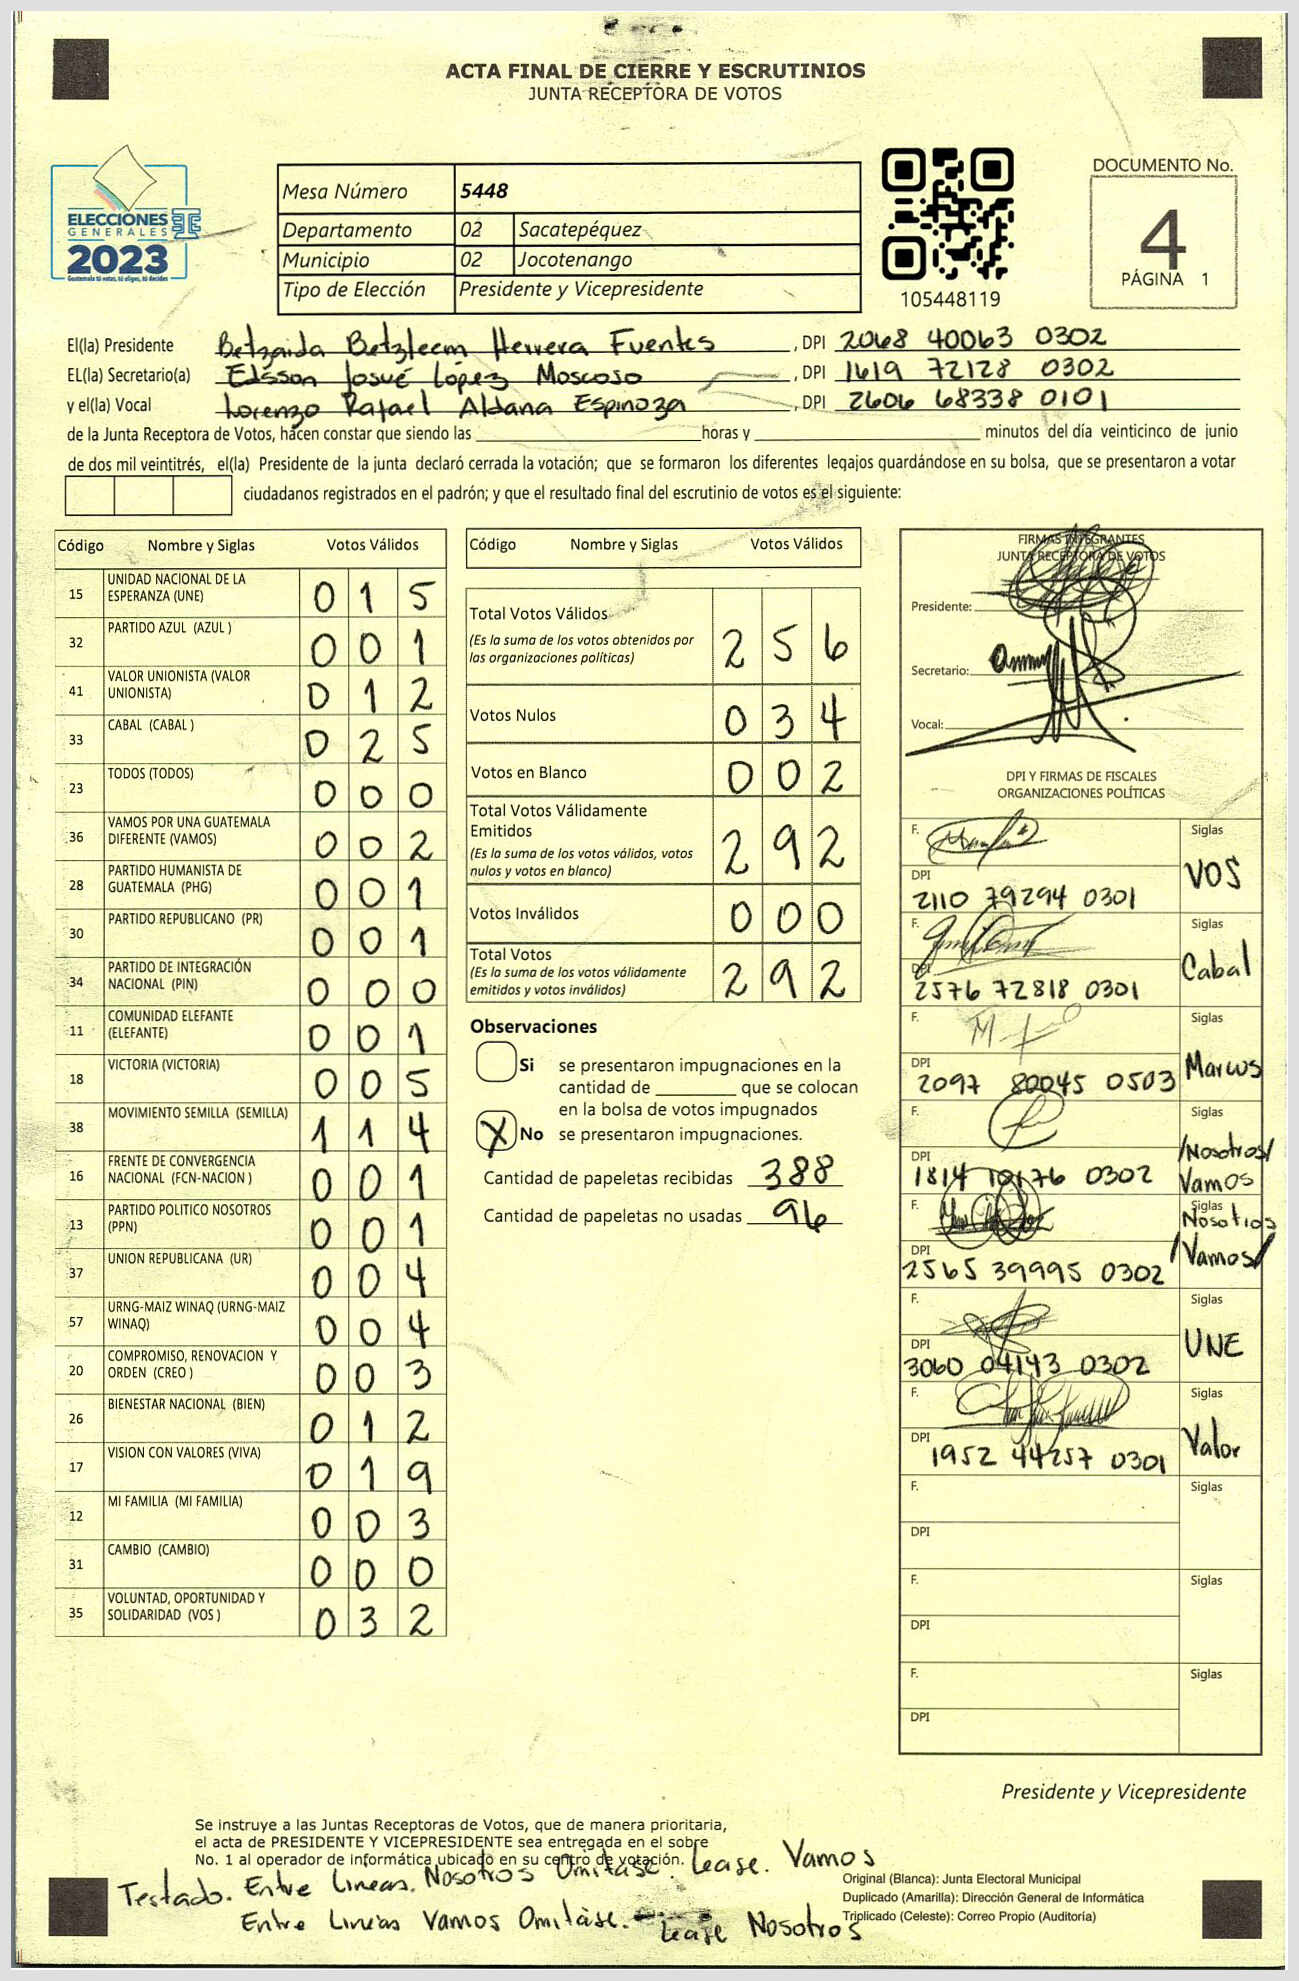 ACTA FINAL DE CIERRE Y ESCRUTINIOS
JUNTA RECEPTORA DE VOTOS
ELECCIONES
GENERALES
2023
Guatemala tú votas, tú eliges, tú decides
Mesa Número 5448
Departamento 02 Sacatepéquez
Municipio 02 Jocotenango
Tipo de Elección Presidente y Vicepresidente
105448119
DOCUMENTO No.
4
PÁGINA 1
El(la) Presidente Betzaida Betzleem Herrera Fuentes, DPI 2068 40063 0302
EL(la) Secretario(a) Edsson Josué López Moscoso, DPI 1619 72128 0302
y el(la) Vocal Lorenzo Rafael Aldana Espinoza, DPI 2606 68338 0101
de la Junta Receptora de Votos, hacen constar que siendo las horas y minutos del día veinticinco de junio
de dos mil veintitrés, el(la) Presidente de la junta declaró cerrada la votación; que se formaron los diferentes legajos guardándose en su bolsa, que se presentaron a votar
ciudadanos registrados en el padrón; y que el resultado final del escrutinio de votos es el siguiente:
Código Nombre y Siglas Votos Válidos
15 UNIDAD NACIONAL DE LA ESPERANZA (UNE) 0 1 5
32 PARTIDO AZUL (AZUL ) 0 0 1
41 VALOR UNIONISTA (VALOR UNIONISTA) 0 1 2
33 CABAL (CABAL ) 0 2 5
23 TODOS (TODOS) 0 0 0
36 VAMOS POR UNA GUATEMALA DIFERENTE (VAMOS) 0 0 2
28 PARTIDO HUMANISTA DE GUATEMALA (PHG) 0 0 1
30 PARTIDO REPUBLICANO (PR) 0 0 1
34 PARTIDO DE INTEGRACIÓN NACIONAL (PIN) 0 0 0
11 COMUNIDAD ELEFANTE (ELEFANTE) 0 0 1
18 VICTORIA (VICTORIA) 0 0 5
38 MOVIMIENTO SEMILLA (SEMILLA) 1 1 4
16 FRENTE DE CONVERGENCIA NACIONAL (FCN-NACION ) 0 0 1
13 PARTIDO POLITICO NOSOTROS (PPN) 0 0 1
37 UNION REPUBLICANA (UR) 0 0 4
57 URNG-MAIZ WINAQ (URNG-MAIZ WINAQ) 0 0 4
20 COMPROMISO, RENOVACION Y ORDEN (CREO ) 0 0 3
26 BIENESTAR NACIONAL (BIEN) 0 1 2
17 VISION CON VALORES (VIVA) 0 1 9
12 MI FAMILIA (MI FAMILIA) 0 0 3
31 CAMBIO (CAMBIO) 0 0 0
35 VOLUNTAD, OPORTUNIDAD Y SOLIDARIDAD (VOS ) 0 3 2
Código Nombre y Siglas Votos Válidos
Total Votos Válidos 2 5 6
(Es la suma de los votos obtenidos por
las organizaciones políticas)
Votos Nulos 0 3 4
Votos en Blanco 0 0 2
Total Votos Válidamente
Emitidos 2 9 2
(Es la suma de los votos válidos, votos
nulos y votos en blanco)
Votos Inválidos 0 0 0
Total Votos 2 9 2
(Es la suma de los votos válidamente
emitidos y votos inválidos)
Observaciones
Si se presentaron impugnaciones en la
cantidad de que se colocan
en la bolsa de votos impugnados
X No se presentaron impugnaciones.
Cantidad de papeletas recibidas 388
Cantidad de papeletas no usadas 96
FIRMAS INTEGRANTES
JUNTA RECEPTORA DE VOTOS
Presidente:
Secretario:
Vocal:
DPI Y FIRMAS DE FISCALES
ORGANIZACIONES POLÍTICAS
F. Siglas
VOS
DPI
2110 79294 0301
F. Siglas
Cabal
DPI
2576 72818 0301
F. Siglas
Marcus
DPI
2097 80045 0503
F. Siglas
/Nosotros/
Vamos
DPI
1814 10176 0302
F. Siglas
Nosotros
/Vamos/
DPI
2565 39995 0302
F. Siglas
UNE
DPI
3060 04143 0302
F. Siglas
Valor
DPI
1952 44257 0301
F. Siglas
DPI
F. Siglas
DPI
F. Siglas
DPI
Presidente y Vicepresidente
Se instruye a las Juntas Receptoras de Votos, que de manera prioritaria,
el acta de PRESIDENTE Y VICEPRESIDENTE sea entregada en el sobre
No. 1 al operador de informática ubicado en su centro de votación.
Testado. Entre Lineas. Nosotros Omitase. Lease. Vamos
Entre Lineas Vamos Omitase. Lease Nosotros
Original (Blanca): Junta Electoral Municipal
Duplicado (Amarilla): Dirección General de Informática
Triplicado (Celeste): Correo Propio (Auditoría)